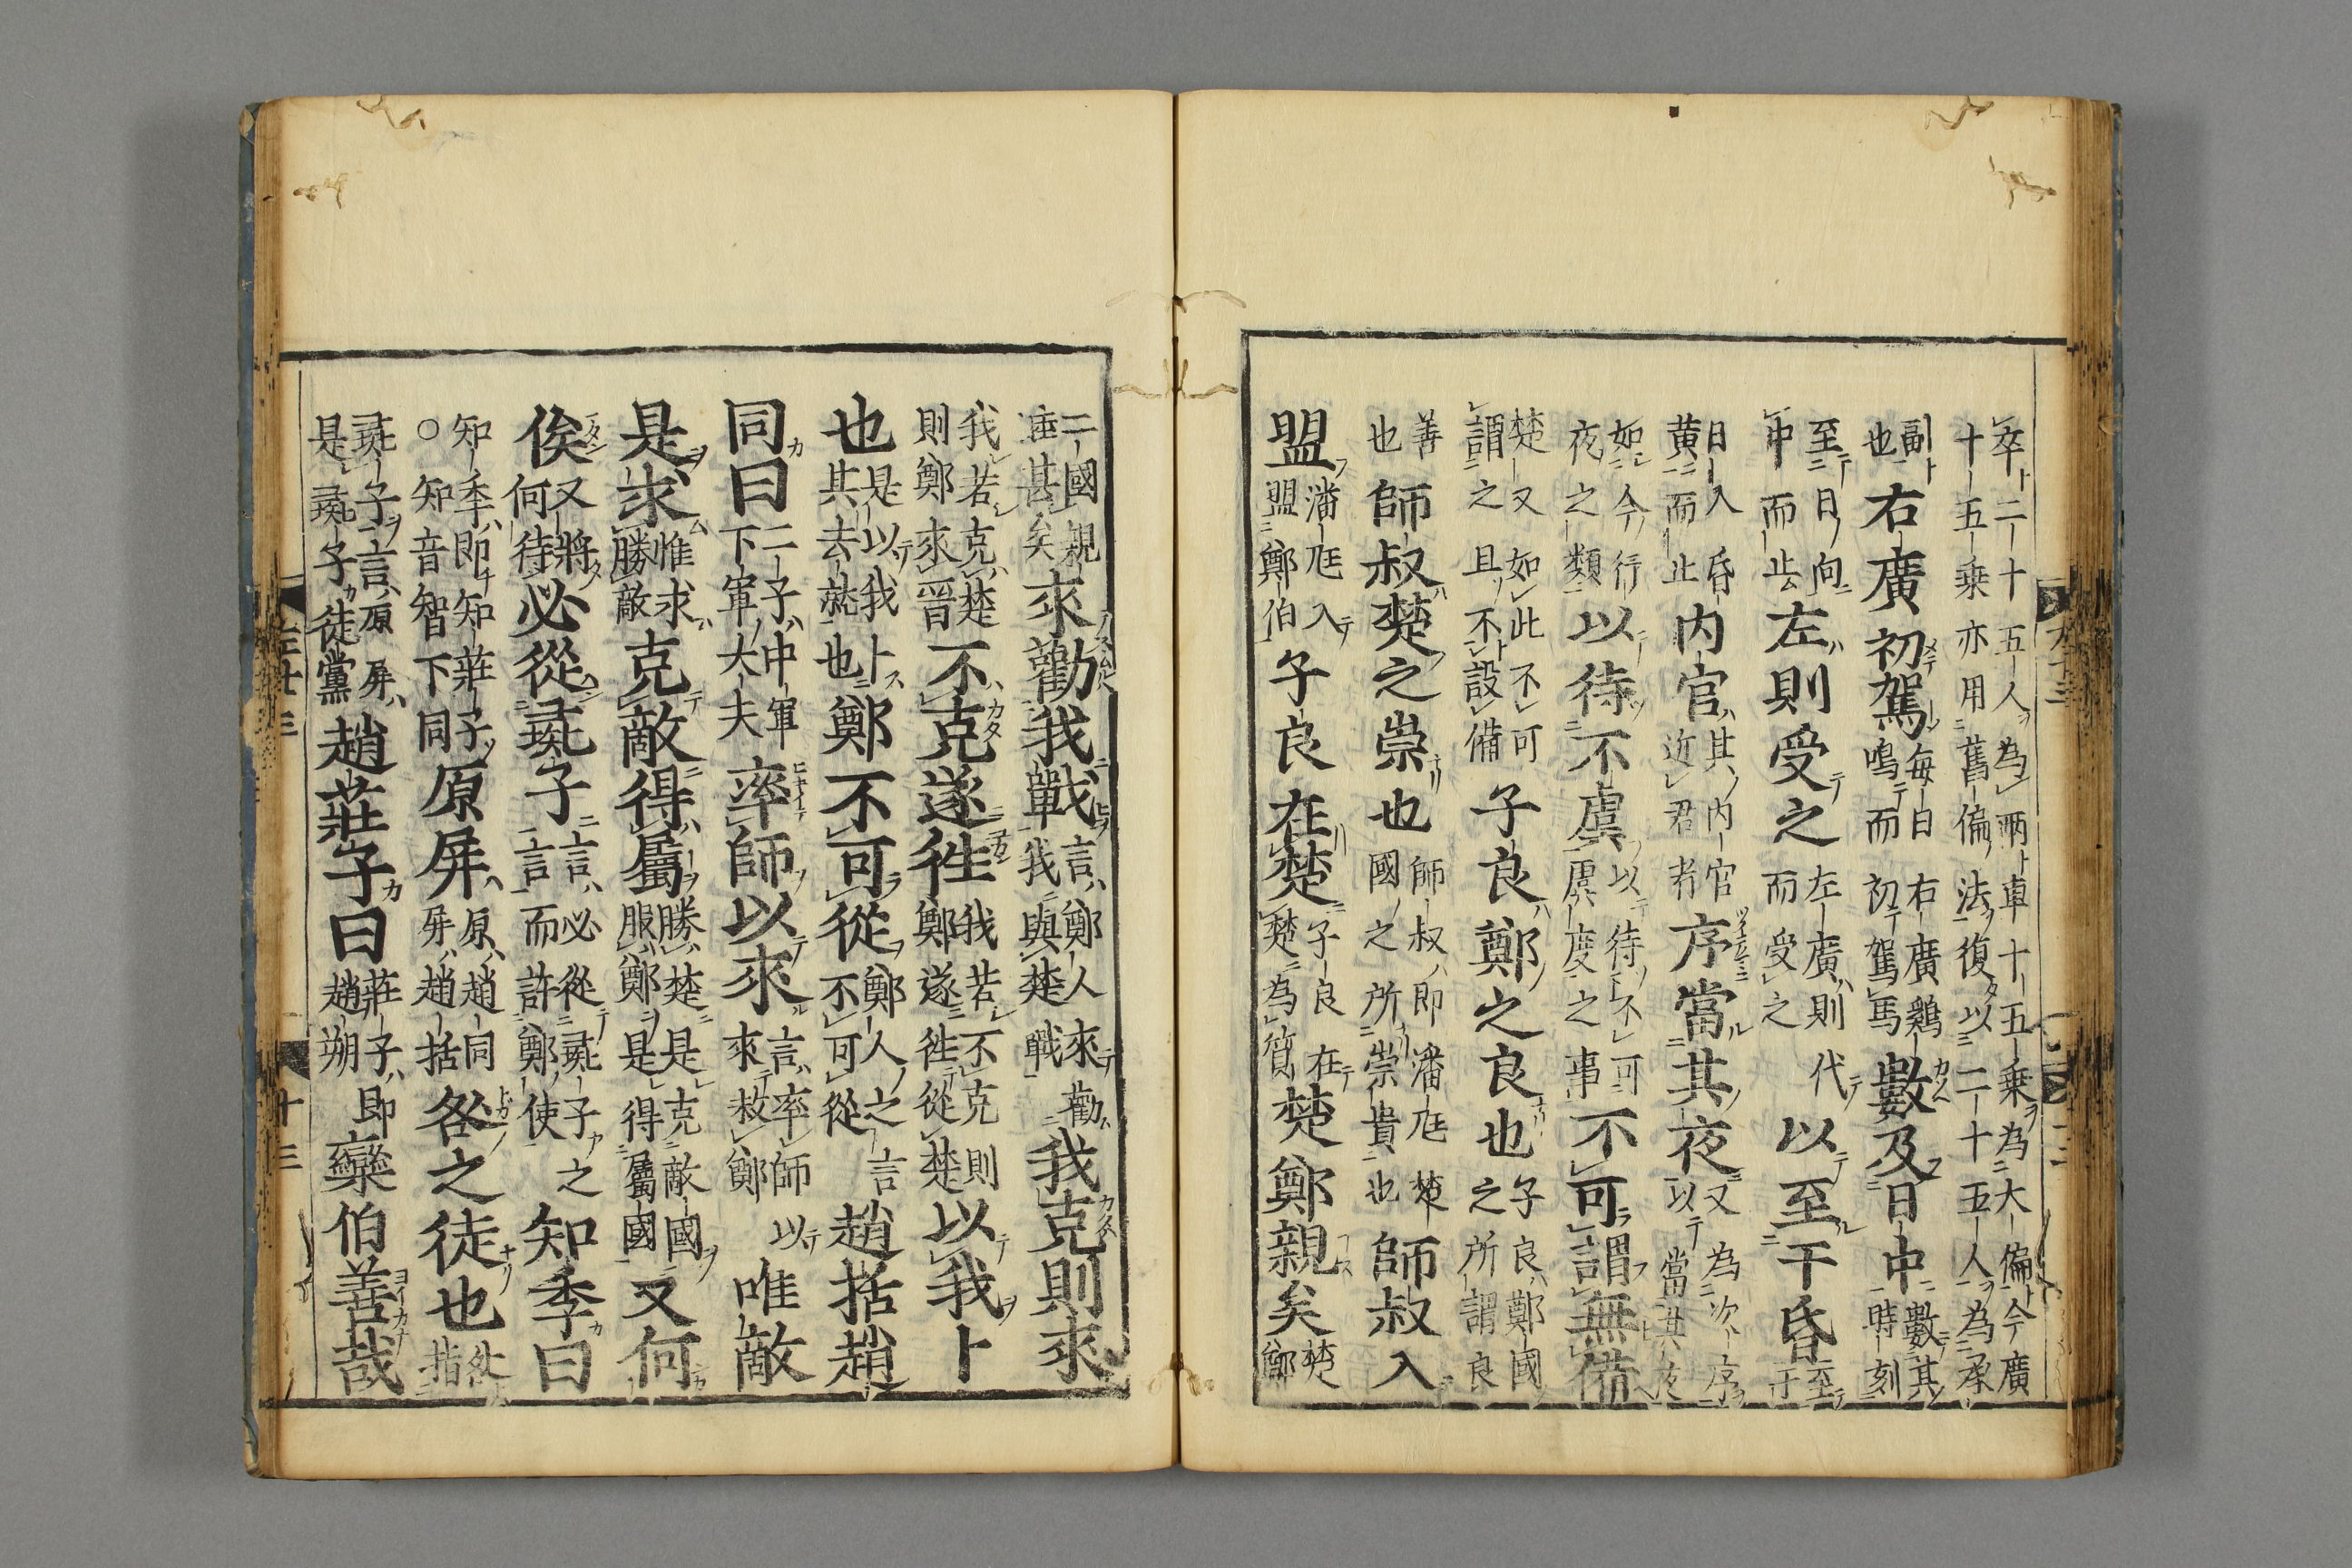 卒二十五人為兩車十五乘為大偏今廣十五乘亦用舊偏法復以二十五人為承
副也右廣初駕每日右廣鷄鳴而初駕馬數及日中數其時刻
至日向中而止左則受之左廣則代而受之以至于昏至于
日入昏黃而止内官其内官近君者序當其夜又為次序以當其夜
如今行夜之類以待不虞以待不可虞度之事不可謂無備
楚又如此不可謂之且不設備子良鄭之良也子良鄭國之所謂良
善也師叔楚之崇也師叔即潘尫楚國之所崇貴也師叔入
盟潘尫入盟鄭伯子良在楚子良在楚為質楚鄭親矣楚鄭
二國親甚矣來勸我戰言鄭人來勸我與楚戰我克則來
我若克楚則鄭來晉不克遂往我若不克則鄭遂往從楚以我卜
也是以我卜其去就也鄭不可從鄭人之言不可從趙括趙
同曰二子中軍下軍大夫率師以來言率師以來救鄭唯敵
是求惟求勝敵克敵得屬勝楚是克敵國服鄭是得屬國又何
俟又將何待必從彘子言必從彘子之言而許鄭使知季曰
知季即知莊子○知音智下同原屏原趙同屏趙括咎之徒也然指
彘子言原屏是彘子徒黨趙莊子曰莊子即趙朔欒伯善哉